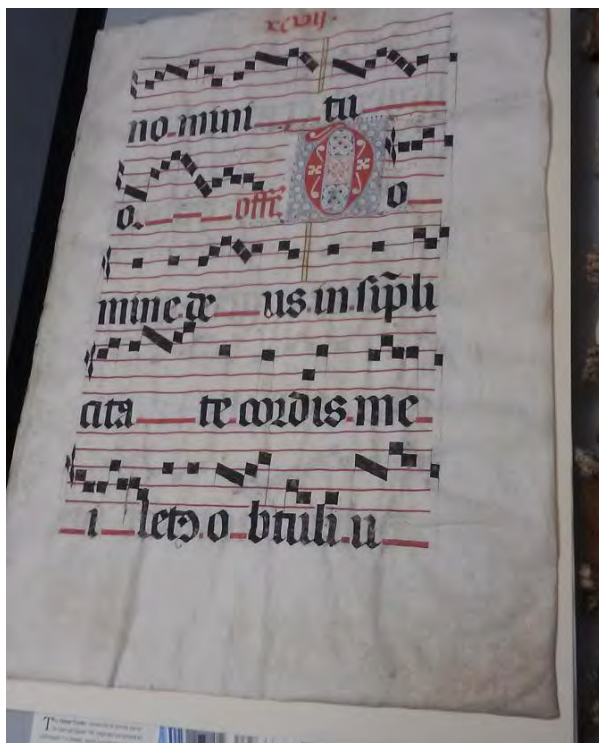 xcvij.
no mini tu
o. offr̄. D o
mine de us. in sip̄li
cita te cordis me
i letꝰ o btuli. u